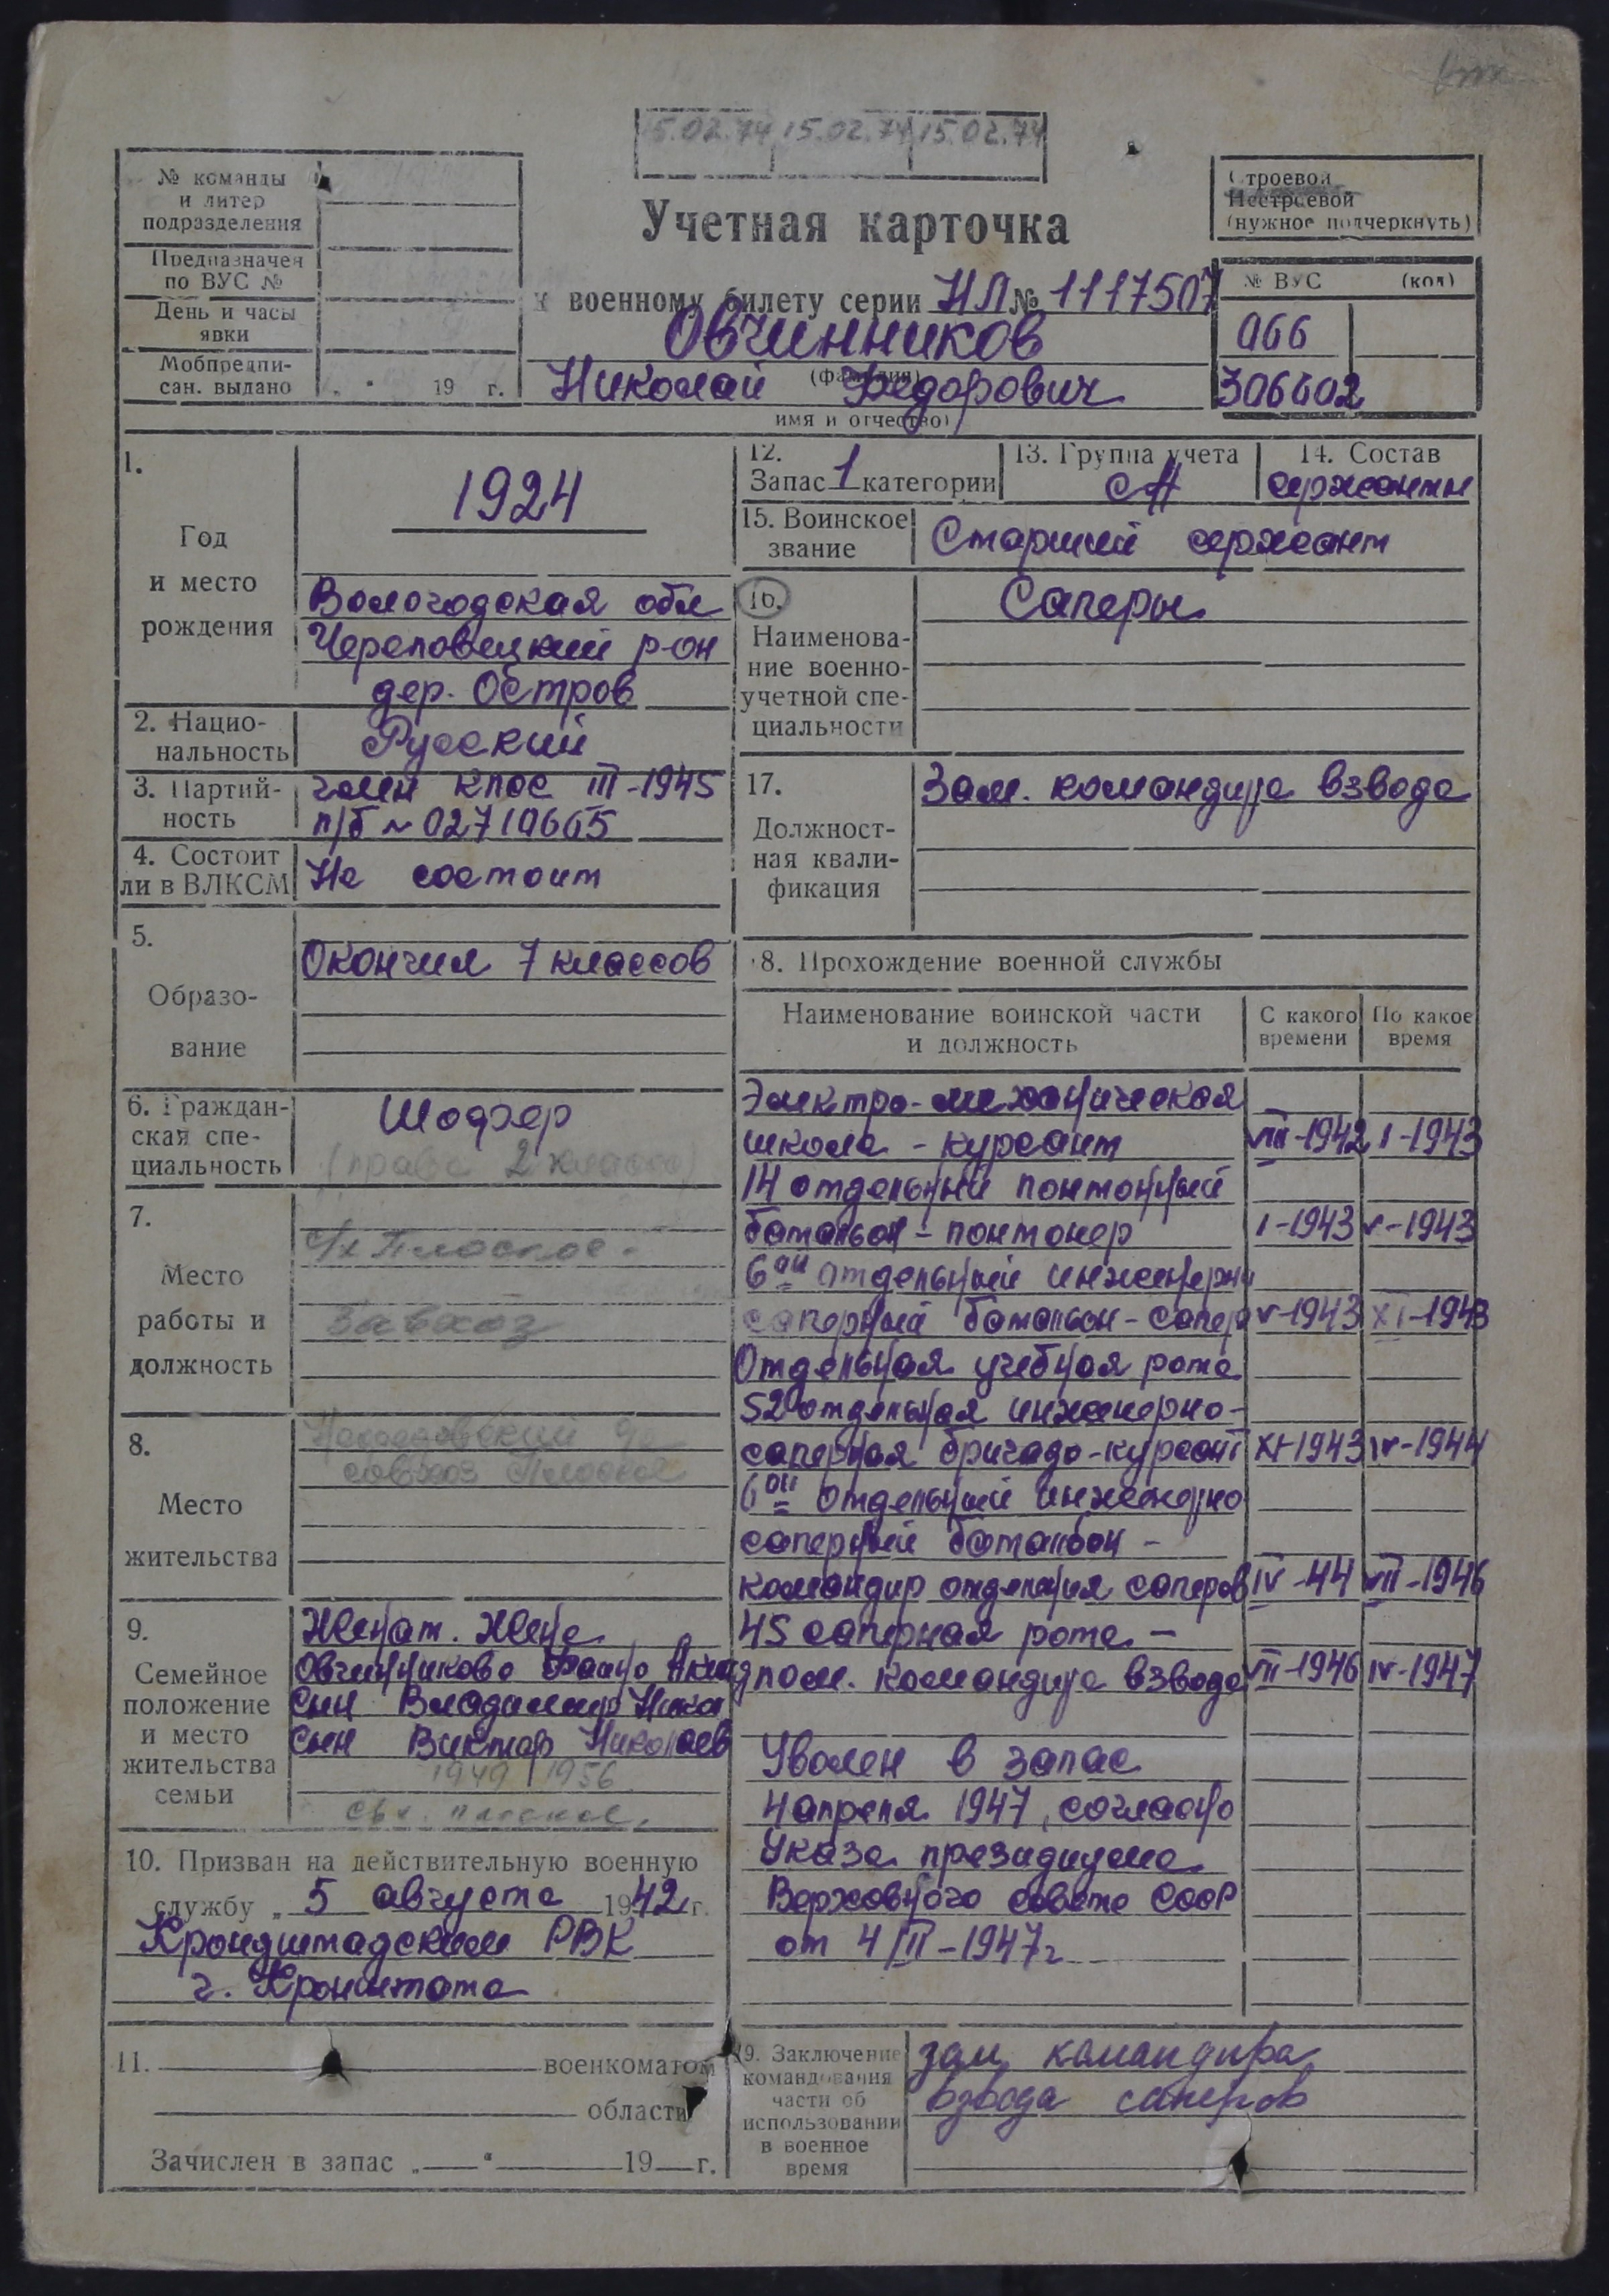 15.02.74 15.02.74 15.02.74
№ команды
и литер
подразделения
Предназначен
по ВУС №
День и часы
явки
Мобпредпи-
сан. выдано „ “ 19 г.
Учетная карточка
к военному билету серии НЛ № 1117507
Овчинников
(фамилия)
Николай Федорович
имя и отчество)
Строевой
Нестроевой
(нужное подчеркнуть)
№ ВУС (код)
066
306602
1.
Год
и место
рождения
1924
Вологодская обл
Череповецкий р-он
дер. Остров
2. Нацио-
нальность
Русский
3. Партий-
ность
член КПСС III-1945
п/б № 02710665
4. Состоит
ли в ВЛКСМ
Не состоит
5.
Образо-
вание
Окончил 7 классов
6. Граждан-
ская спе-
циальность
Шофер
(права 2 класса)
7.
Место
работы и
должность
с/х Плоское.
Завхоз
8.
Место
жительства
совхоз
9.
Семейное
положение
и место
жительства
семьи
Женат. Жена
Овчинникова
сын Владимир Никол
сын Виктор Николаев
1949 1956
свх. плоское.
10. Призван на действительную военную
службу „ 5 августа 1942 г.
Крондштадским РВК
г. Кронштата
11. военкоматом
области
Зачислен в запас „ “ 19 г.
12.
Запас 1 категории
13. Группа учета
СА
14. Состав
сержанты
15. Воинское
звание
Старший сержант
16.
Наименова-
ние военно-
учетной спе-
циальности
Саперы
17.
Должност-
ная квали-
фикация
Зам. командира взвода
18. Прохождение военной службы
Наименование воинской части
и должность
С какого
времени
По какое
время
Электро-механическая
школа - курсант VIII-1942 I-1943
14 отдельный понтонный
батальон - понтонер I-1943 V-1943
6ой отдельный инженерн
саперный батальон - сапер V-1943 XI-1943
Отдельная учебная рота
52 отдельная инженерно-
саперная бригада - курсант XI-1943 IV-1944
6ой отдельный инженерно
саперный батальон -
командир отделения саперов IV-44 VII-1946
45 саперная рота -
пом. командира взвода VII-1946 IV-1947
Уволен в запас
4 апреля 1947, согласно
Указа президиума
Верховного совета СССР
от 4/III-1947г
19. Заключение
командования
части об
использовании
в военное
время
зам. командира
взвода саперов